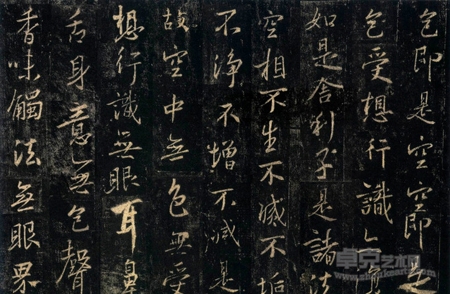 色即是空空即是
色受想行識亦復
如是舍利子是諸法
空相不生不滅不垢
不淨不增不減是
故空中無色無受
想行識無眼耳鼻
舌身意無色聲
香味觸法無眼界
卓克艺术网